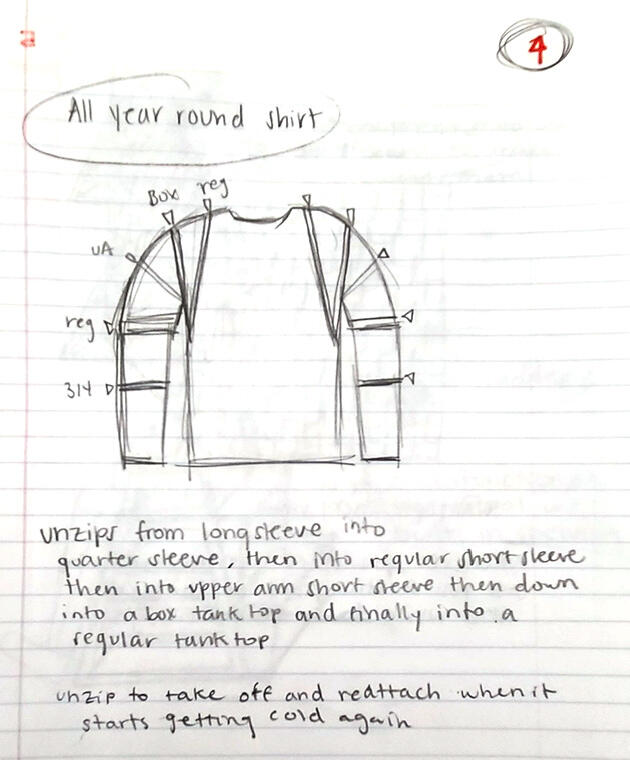 4
All year round shirt
Box reg
UA
reg
3/4
unzips from longsleeve into
quarter sleeve, then into regular short sleeve
then into upper arm short sleeve then down
into a box tank top and finally into a
regular tank top
unzip to take off and reattach when it
starts getting cold again